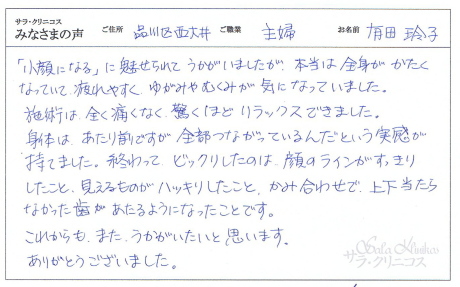 サラ・クリニコス
みなさまの声 ご住所 品川区西大井 ご職業 主婦 お名前 有田 玲子
「小顔になる」に魅せられてうかがいましたが、本当は全身がかたく
なっていて、疲れやすく、ゆがみやむくみが気になっていました。
施術は、全く痛くなく、驚くほどリラックスできました。
身体は、あたり前ですが全部つながっているんだという実感が
持てました。終わって、ビックリしたのは、顔のラインがすっきり
したこと、見えるものがハッキリしたこと、かみ合わせで、上下当たら
なかった歯があたるようになったことです。
これからも、また、うかがいたいと思います。
ありがとうございました。
Sala Klinikos
サラ・クリニコス